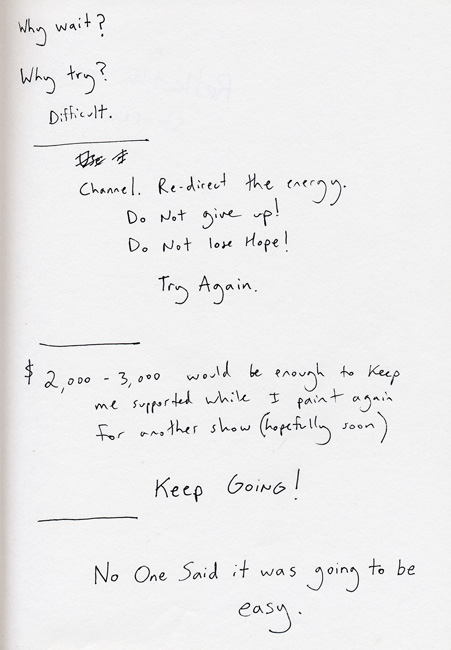 Why wait?
Why try?
Difficult.
Channel. Re-direct the energy.
Do Not give up!
Do Not lose Hope!
Try Again.
$2,000 - 3,000 would be enough to Keep
me supported while I paint again
for another show (hopefully soon)
Keep Going!
No One Said it was going to be
easy.